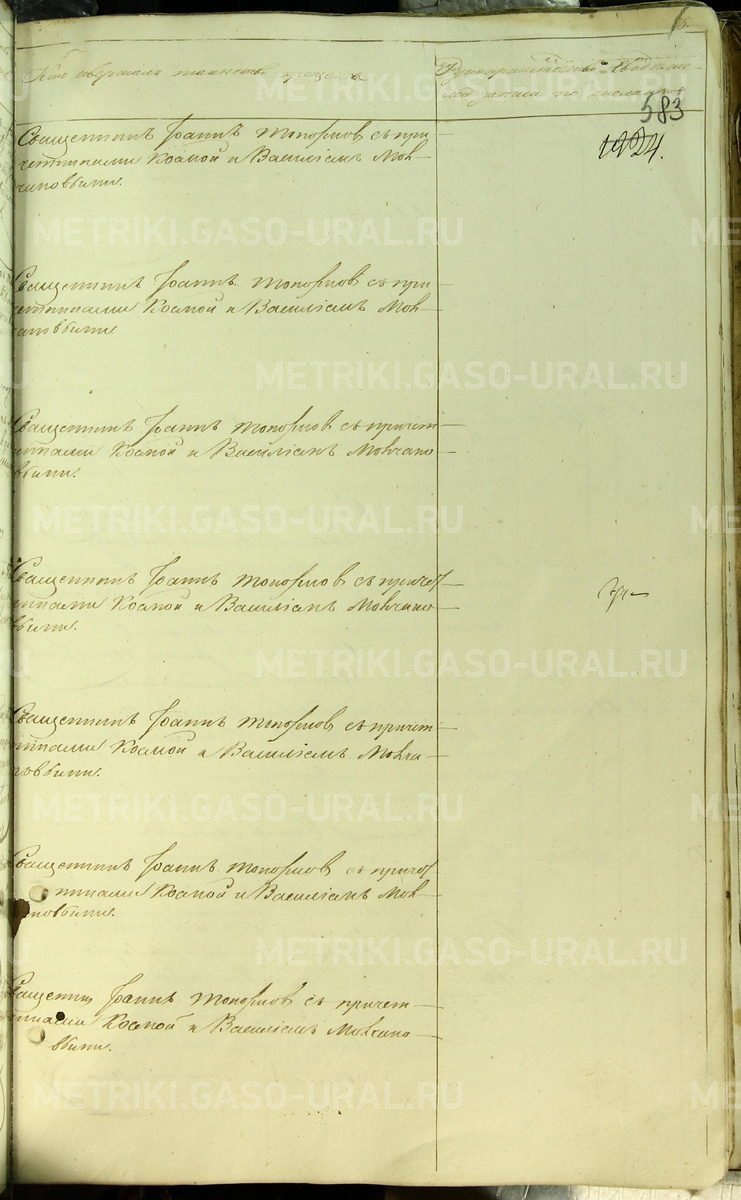 Кто совершалъ таинство крещенія
Рукоприкладство свидѣте-
лей записи по желанію
583
1924.
Священникъ Іоаннъ Топорковъ съ при-
четниками Космой и Василіемъ Мол-
чановыми.
Священникъ Іоаннъ Топорковъ съ при-
четниками Космой и Василіемъ Мол-
чановыми
Священникъ Іоаннъ Топорковъ съ причет-
никами Космой и Василіемъ Молчано-
выми.
Священникъ Іоаннъ Топорковъ съ причет-
никами Космой и Василіемъ Молчано-
выми.
Священникъ Іоаннъ Топорковъ съ причет-
никами Космой и Василіемъ Молча-
новыми.
Священникъ Іоаннъ Топорковъ съ причет-
никами Космой и Василіемъ Мол-
чановыми.
Священникъ Іоаннъ Топорковъ съ причет-
никами Космой и Василіемъ Молчано-
выми.
METRIKI.GASO-URAL.RU